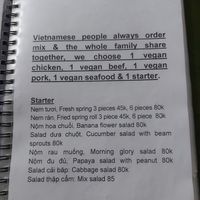 Vietnamese people always order
mix & the whole family share
together, we choose 1 vegan
chicken, 1 vegan beef, 1 vegan
pork, 1 vegan seafood & 1 starter.
Starter
Nem tươi, Fresh spring 3 pieces 45k, 6 pieces 80k
Nem rán. Fried spring roll 3 piece 45k, 6 piece 80k
Nộm hoa chuối, Banana flower salad 80k
Salad dưa chuột. Cucumber salad with beam
sprouts 80k
Nộm rau muống, Morning glory salad 80k
Nộm đu đủ, Papaya salad with peanut 80k
Salad cải bắp: Cabbage salad 80k
Salad thập cẩm: Mix salad 85